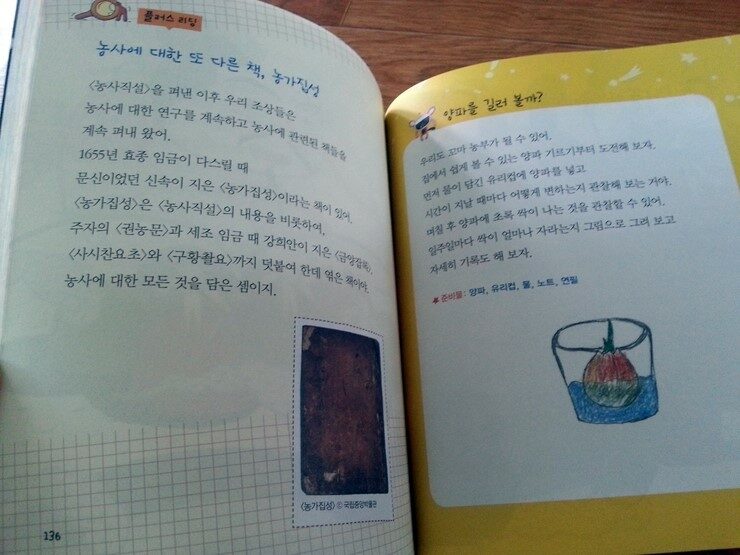 플러스 리딩
농사에 대한 또 다른 책, 농가집성
〈농사직설〉을 펴낸 이후 우리 조상들은
농사에 대한 연구를 계속하고 농사에 관련된 책들을
계속 펴내 왔어.
1655년 효종 임금이 다스릴 때
문신이었던 신속이 지은 〈농가집성〉이라는 책이 있어.
〈농가집성〉은 〈농사직설〉의 내용을 비롯하여,
주자의 〈권농문〉과 세조 임금 때 강희안이 지은 〈금양잡록〉,
〈사시찬요초〉와 〈구황촬요〉까지 덧붙여 한데 엮은 책이야.
농사에 대한 모든 것을 담은 셈이지.
〈농가집성〉 ⓒ 국립중앙박물관
136
양파를 길러 볼까?
우리도 꼬마 농부가 될 수 있어.
집에서 쉽게 볼 수 있는 양파 기르기부터 도전해 보자.
먼저 물이 담긴 유리컵에 양파를 넣고
시간이 지날 때마다 어떻게 변하는지 관찰해 보는 거야.
며칠 후 양파에 초록 싹이 나는 것을 관찰할 수 있어.
일주일마다 싹이 얼마나 자라는지 그림으로 그려 보고
자세히 기록도 해 보자.
준비물 : 양파, 유리컵, 물, 노트, 연필